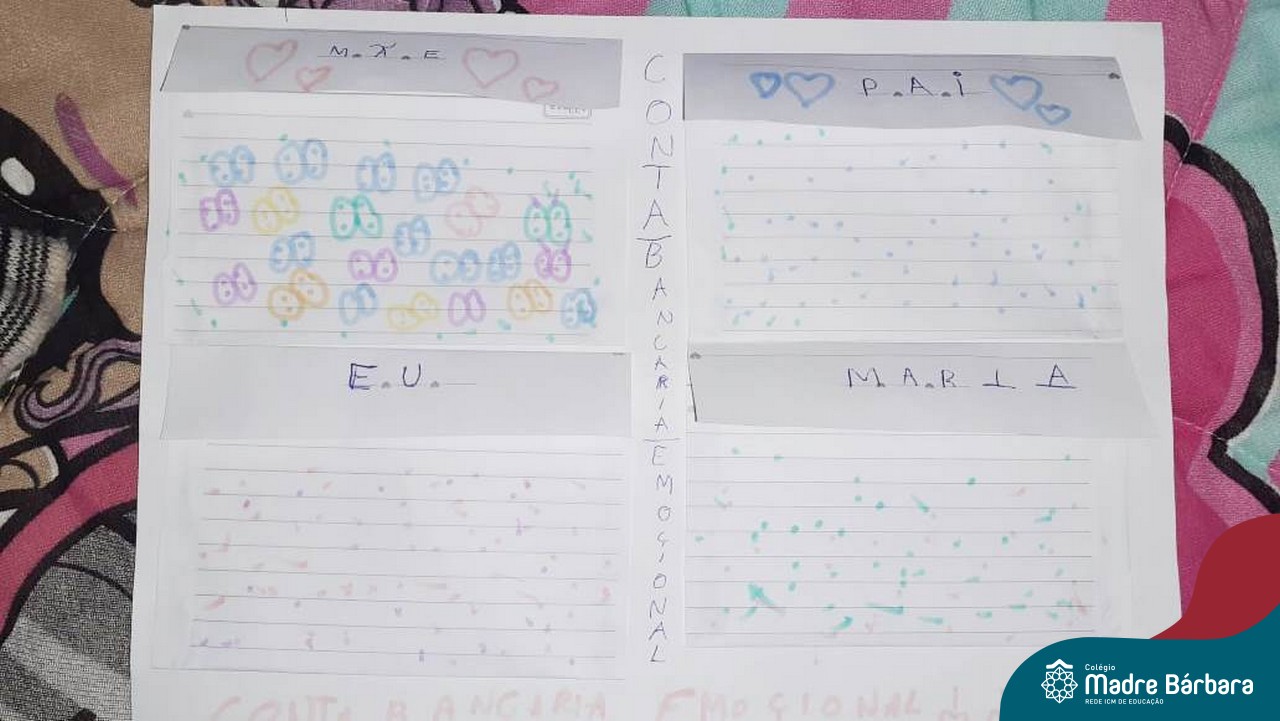 M.Ã.E
P.A.I
CONTA BANCARIA EMOCIONAL
E.U.
M.A.R I A
CONTA BANCARIA EMOCIONAL
Colégio
Madre Bárbara
REDE ICM DE EDUCAÇÃO